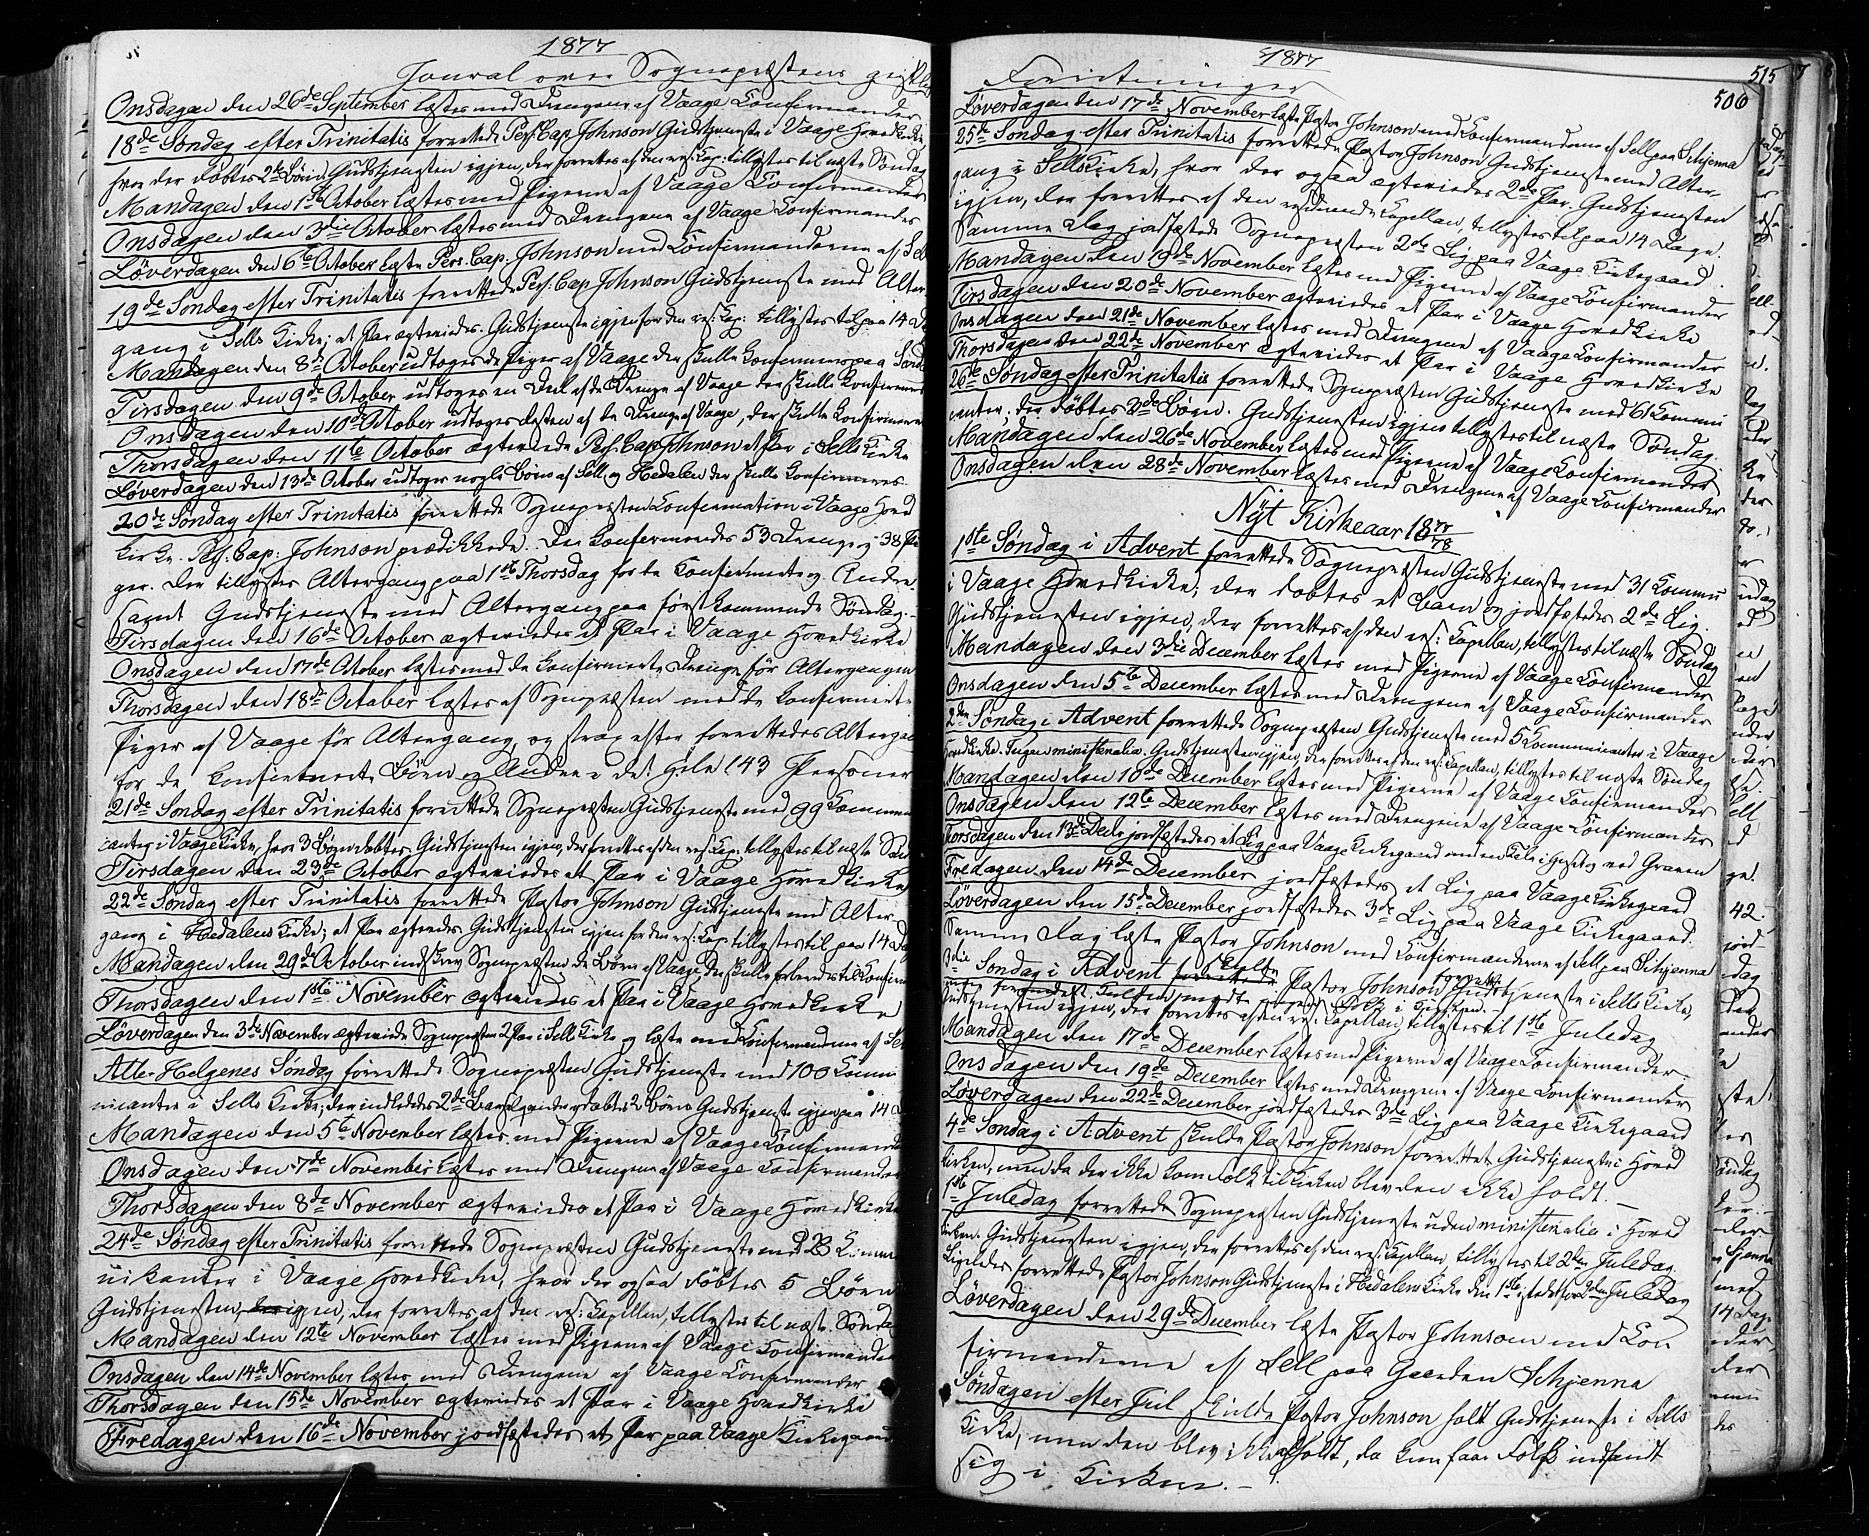 1877
Jounal over Sognepræstens geistlig
Onsdagen den 26de September læstes med Drengene af Vaage Confirmander
18de Søndag efter Trinitatis forrettede Pers: Cap. Johnson Gudstjeneste i Vaage Hovedkirke
hvor der døbtes 2de Børn. Gudstjenesten igjen, der forrettes af den res: Kap: tillystes til næste Søndag
Mandagen den 1ste October læstes med Pigerne af Vaage Confirmander
Onsdagen den 3die October læstes med Drengene af Vaage Confirmander
Løverdagen den 6te October læste Pers. Cap. Johnson med Confirmanderne af Sell
19de Søndag efter Trinitatis forrettede Pers: Cap Johnson Gudstjeneste med Alter
gang i Sells Kirke; et Par ægteviedes. Gudstjeneste igjen for den res: Kap: tillystes til paa 14 D
Mandagen den 8de October udtoges de Piger af Vaage der skulle Confirmeres paa Sønd
Tirsdagen den 9de October udtoges en Deel af de Drenge af Vaage der skulle Confirmere
Onsdagen den 10de October udtoges Resten af de Drenge af Vaage, der skulle Confirmere
Thorsdagen den 11te October ægteviede Pers. Cap. Johnson et Par i Sells Kirke
Løverdagen den 13de October udtoges nogle Børn af Sell og Hedalen der skulle Confirmeres
20de Søndag efter Trinitatis forrettede Sognepræsten Confirmation i Vaage Hoved
kirke. Pers. Cap: Johnson prædikkede. Der Confirmeredes 53 Drenge og 38 Pi
ger. Der tillystes Altergang paa 1ste Thorsdag for de Confirmerte og Andre
samt Gudstjeneste med Altergang paa førstkommende Søndag.
Tirsdagen den 16de October ægteviedes et Par i Vaage Hovedkirke
Onsdagen den 17de October læstes med de Confirmerte Drenge før Altergangen
Thorsdagen den 18de October læstes af Sognepræsten med de Confirmerte
Piger af Vaage før Altergang, og strax efter forrettedes Alterga
for de Confirmerte Børn og Andre i det Hele 143 Personer
21de Søndag efter Trinitatis forrettede Sognepræsten Gudstjeneste med 99 Commun
icanter i Vaage Kirke, hvor 3 Børn døbtes. Gudstjenesten igjen, der forrettes af den res: Kap: tillystes til næste Sønd
Tirsdagen den 23de October ægteviedes et Par i Vaage Hovedkirke
22de Søndag efter Trinitatis forrettede Pastor Johnson Gudstjeneste med Alter
gang i Hedalens Kirke; et Par ægteviedes. Gudstjenesten igjen for den res: Cap: tillystes til paa 14 Da
Mandagen den 29de October indskrev Sognepræsten de Børn af Vaage der skulle forberedes til Confirm
Thorsdagen den 1ste November ægteviedes et Par i Vaage Hovedkirke
Løverdagen den 3die November ægteviede Sognepræsten 2 Par i Sell Kirke og læste med Confirmanderne af Se
Alle-Helgenes Søndag forrettede Sognepræsten Gudstjeneste med 100 Commu
nicanter i Sells Kirke; der indlededes 2de Barselqvinder døbtes 2 Børn Gudstjeneste igjen paa 14 D
Mandagen den 5te November læstes med Pigerne af Vaage Confirmand
Onsdagen den 7de November læstes med Drengene af Vaage Confirmander
Thorsdagen den 8de November ægteviedes et Par i Vaage Hovedkirke
24de Søndag efter Trinitatis forrettede Sognepræsten Gudstjeneste med 23 Comm
unikanter i Vaage Hovedkirke, hvor der ogsaa døbtes 5 Børn
Gudstjenesten, igjen, der forrettes af den res: Capellan, tillystes til næste Sønda
Mandagen den 12te November læstes med Pigerne af Vaage Confirmander
Onsdagen den 14de November læstes med Drengene af Vaage Confirmander
Thorsdagen den 15de November ægteviedes et Par i Vaage Hovedkirke
Fredagen den 16de November jordfæstedes et Par paa Vaage Kirkegaard
1877
515
506
Forretninger
Løverdagen den 17de November læste Pastor Johnson med Confirmanderne af Sell paa Schjenna
25de Søndag efter Trinitatis forrettede Pastor Johnson Gudstjeneste med Alter-
gang i Sells Kirke, hvor der ogsaa ægteviedes 2de Par. Gudstjenesten
igjen, der forrettes af den residerende Capellan, tillystes til paa 14 Dage.
Samme Dag jordfæstede Sognepræsten 2de Lig paa Vaage Kirkegaard.
Mandagen den 19de November læstes med Pigerne af Vaage Confirmander
Tirsdagen den 20de November ægteviedes et Par i Vaage Hovedkirke
Onsdagen den 21de November læstes med Drengene af Vaage Confirmander
Thorsdagen den 22de November ægteviedes et Par i Vaage Hovedkirke
26de Søndag efter Trinitatis forrettede Sognepræsten Gudstjeneste med 61 Commu
nicanter. der døbtes 3de Børn. Gudstjenesten igjen tillystes til næste Søndag.
Mandagen den 26de November læstes med Pigerne af Vaage Confirmander
Onsdagen den 28de November læstes med Drengene af Vaage Confirmander
Nyt Kirkeaar 1877/78
1ste Søndag i Advent forrettede Sognepræsten Gudstjeneste med 31 Commu
i Vaage Hovedkirke; der døbtes et Barn og jordfæstedes 2de Lig.
Gudstjenesten igjen, der forrettes af den res: Capellan, tillystes til næste Søndag
Mandagen den 3die December læstes med Pigerne af Vaage Confirmander
Onsdagen den 5te December læstes med Drengene af Vaage Confirmander
2den Søndag i Advent forrettede Sognepræsten Gudstjeneste med 5 Communicanter i Vaage
Hovedkirke. Ingen ministerialia. Gudstjenesten igjen, der forrettes af den res: Capellan, tillystes til næste Søndag
Mandagen den 10de December læstes med Pigerne af Vaage Confirmander
Onsdagen den 12te December læstes med Drengene af Vaage Confirmander
Thorsdagen den 13de Decbr jordfæstedes et Lig paa Vaage Kirkegaard med en Tale i Huset og ved Graven
Fredagen den 14de December jordfæstedes et Lig paa Vaage Kirkegaard
Løverdagen den 15de December jordfæstedes 3de Lig paa Vaage Kirkegaard.
Samme Dag læste Pastor Johnson med Confirmanderne af Sell paa Schjenna
3die Søndag i Advent skulde Pastor Johnson forrette Gudstjeneste i Sells Kirke,
Folk i Kirken.
Gudstjenesten igjen, der forrettes af den res: Capellan, tillystes til 1ste Juledag
Mandagen den 17de December læstes med Pigerne af Vaage Confirmander
Onsdagen den 19de December læstes med Drengene af Vaage Confirmander
Løverdagen den 22de December jordfæstedes 3de Lig paa Vaage Kirkegaard
4de Søndag i Advent skulde Pastor Johnson forrettet Gudstjeneste i Hoved
kirken, men da der ikke kom Folk til Kirken blev den ikke holdt.
1ste Juledag forrettede Sognepræsten Gudstjeneste uden ministerialia i Hoved
kirken. Gudstjenesten igjen, der forrettes af den res: Capellan, tillystes til 2den Juledag.
Ligeledes forrettede Pastor Johnson Gudstjeneste i Hedalens Kirke den 1ste istedetfor 2den Juledag
Løverdagen den 29de December læste Pastor Johnson med Con
firmanderne af Sell paa Gaarden Schjenna
Søndagen efter Jul skulde Pastor Johnson holdt Gudstjeneste i Sells
Kirke, men den blev ikke afholdt, da kun faa Folk indfandt
sig i Kirken.